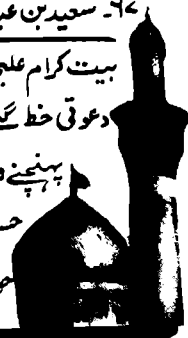 ۶۷۔ سعید بن عبد
بیت کرام علیہ
دعوتی خط کے
پہنچنے
حس